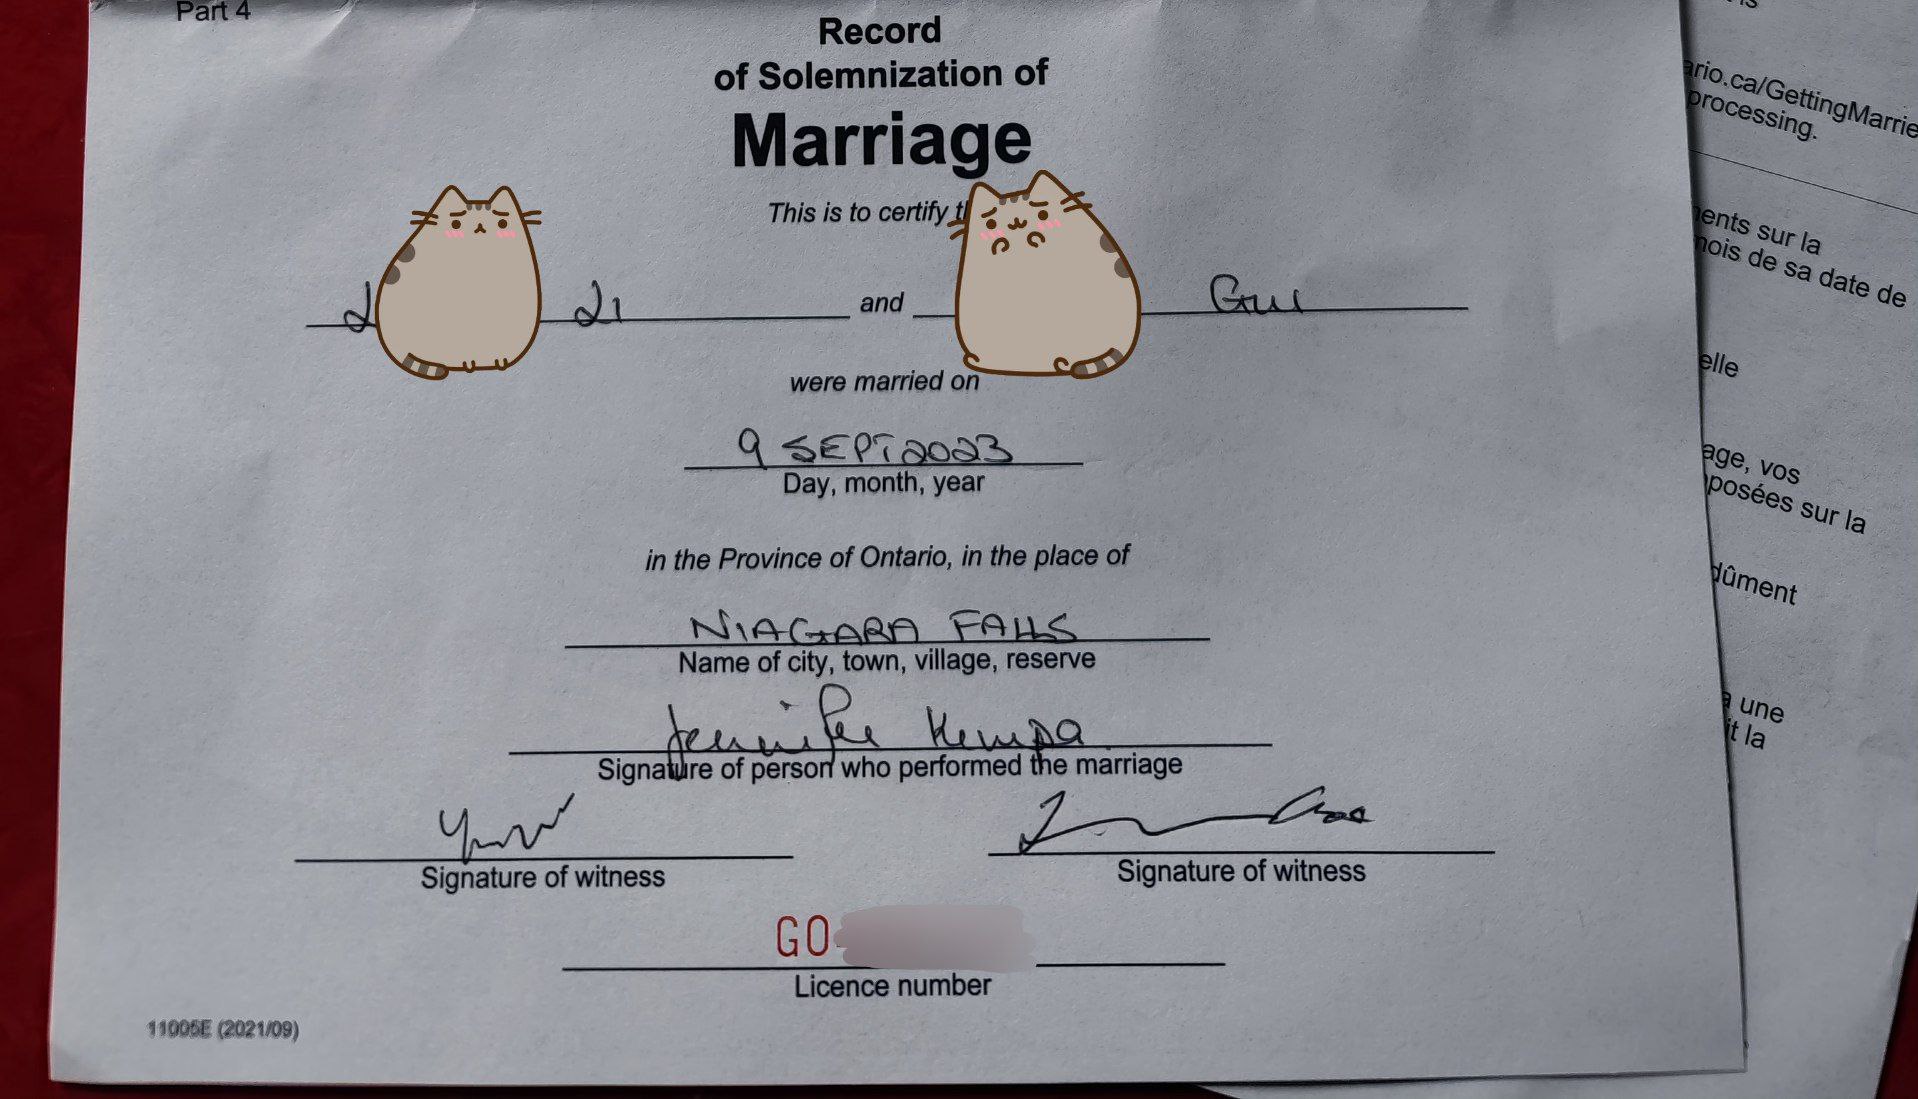 Part 4
Record
of Solemnization of
Marriage
This is to certify
and Gui
were married on
9 SEPT 2023
Day, month, year
in the Province of Ontario, in the place of
NIAGARA FALLS
Name of city, town, village, reserve
Jennifer Kempa
Signature of person who performed the marriage
Signature of witness
Signature of witness
GO
Licence number
11005E (2021/09)
ario.ca/GettingMarrie
processing.
ments sur la
mois de sa date de
elle
age, vos
posées sur la
dûment
a une
it la